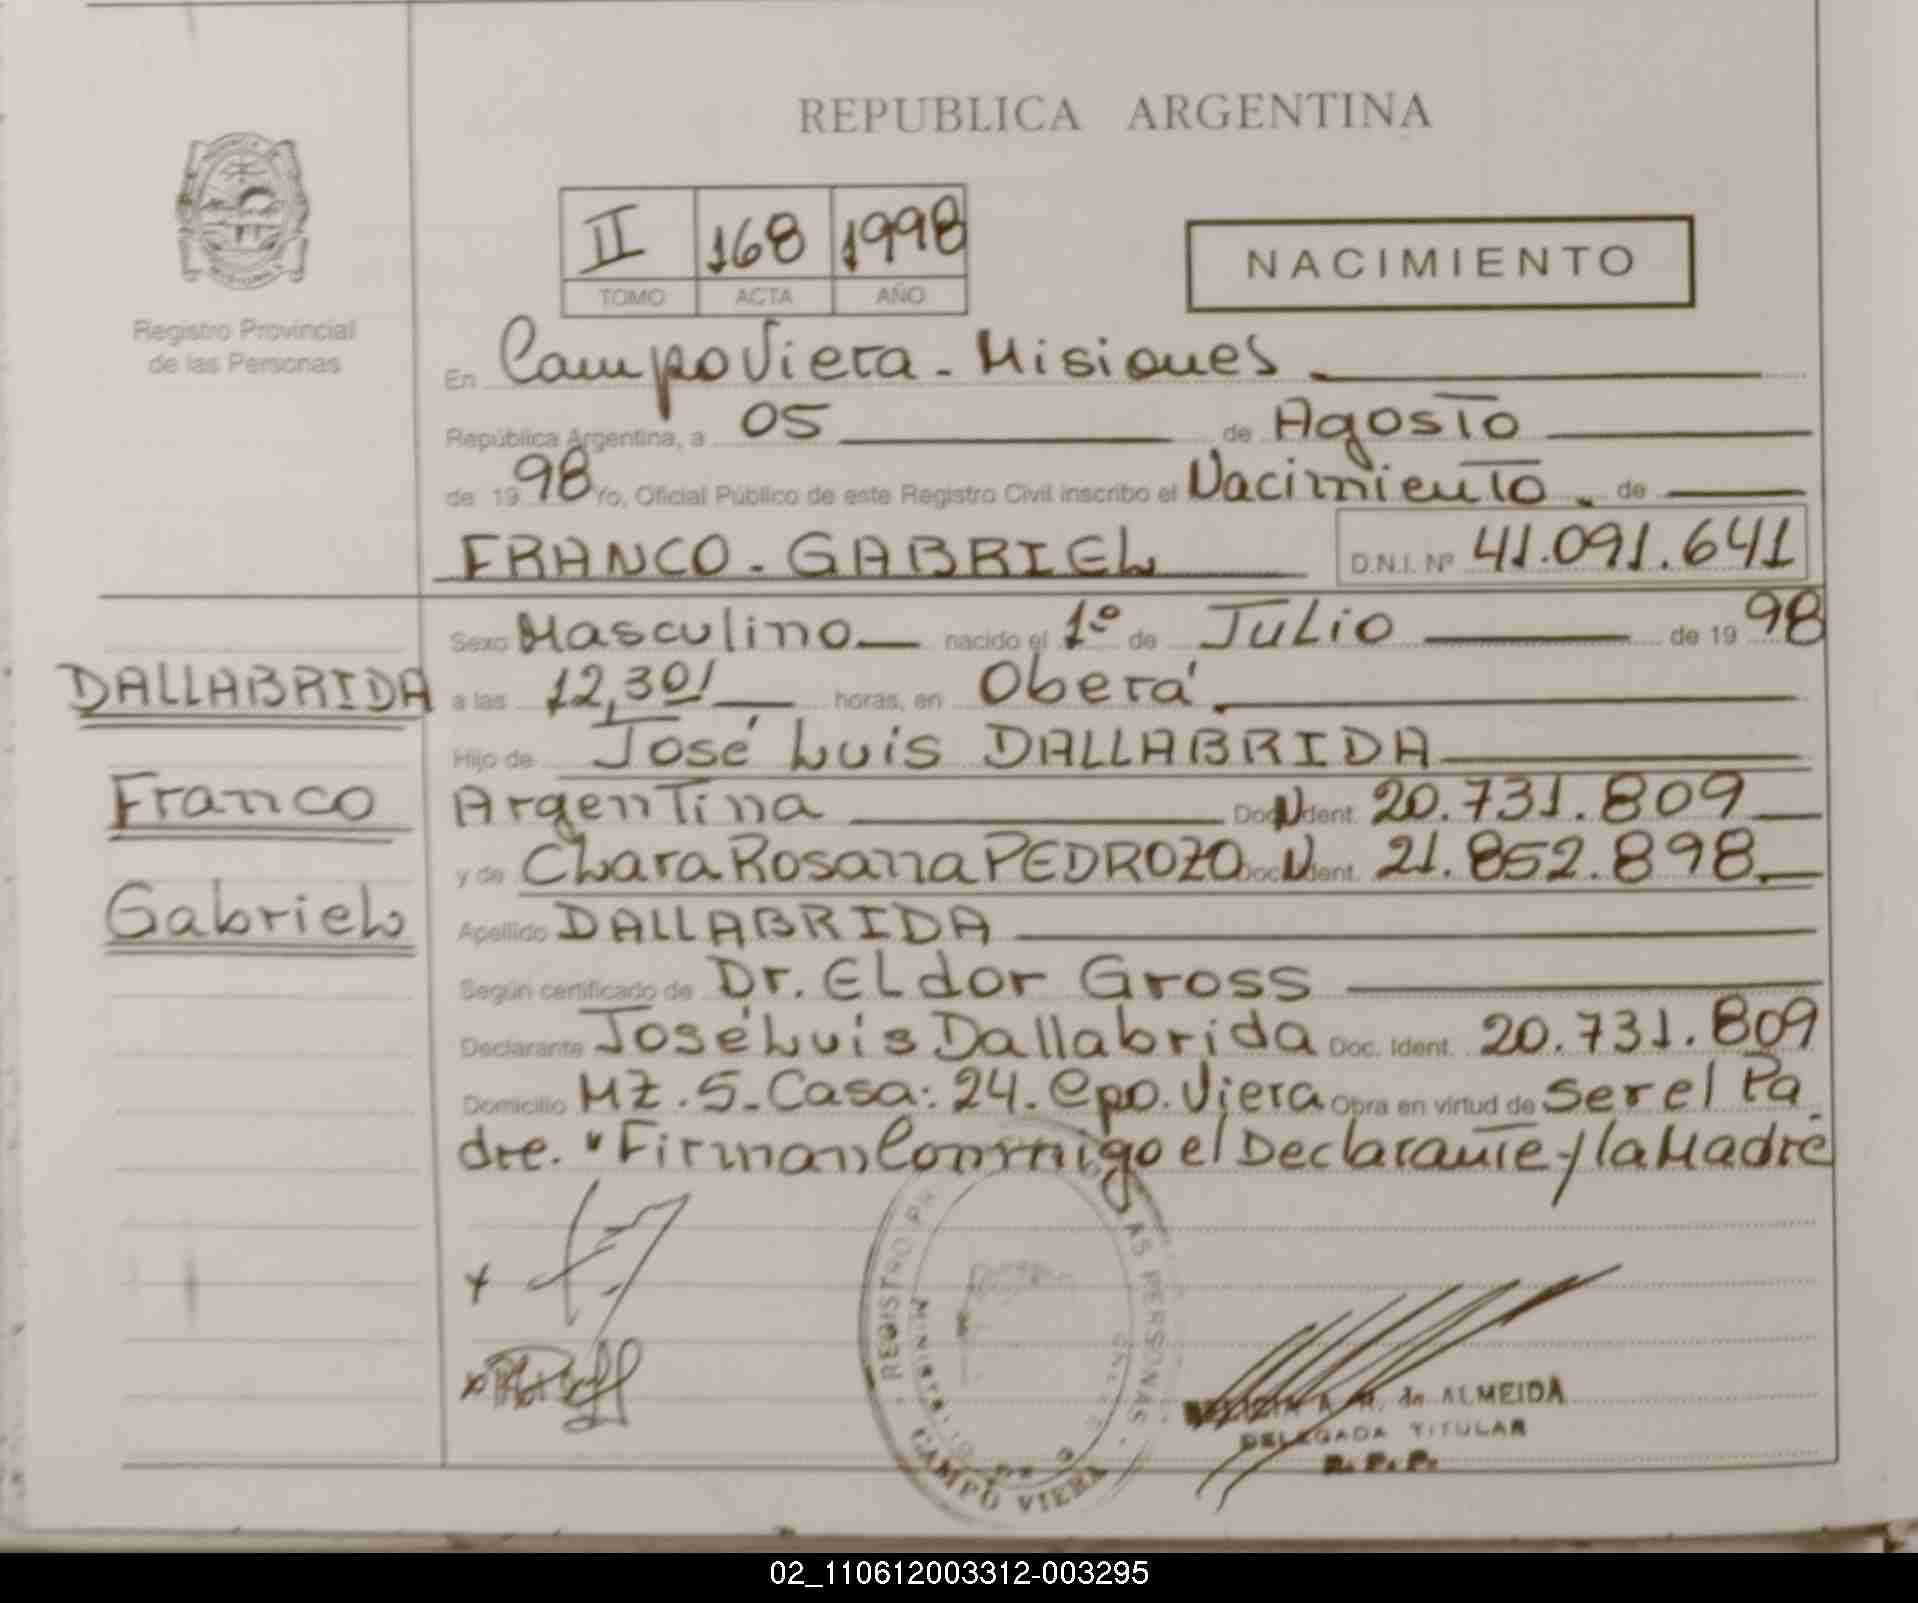 REPUBLICA ARGENTINA
II 168 1998
TOMO ACTA AÑO
NACIMIENTO
Registro Provincial
de las Personas
En Campo Viera - Misiones
República Argentina, a 05 de Agosto
de 19 98 Yo, Oficial Público de este Registro Civil inscribo el Nacimiento. de
FRANCO - GABRIEL D.N.I. Nº 41.091.641
DALLABRIDA
Franco
Gabriel
Sexo Masculino nacido el 1º de Julio de 19 98
a las 12,30 horas, en Oberá
Hijo de José Luis DALLABRIDA
Argentina Doc. Ident. 20.731.809
y de Clara Rosana PEDROZO Doc. Ident. 21.852.898
Apellido DALLABRIDA
Según certificado de Dr. Eldor Gross
Declarante José Luis Dallabrida Doc. Ident. 20.731.809
Domicilio Mz. 5 - Casa: 24. Cpo. Viera Obra en virtud de Ser el Pa
dre. "Firman Conmigo el Declarante y la Madre
REGISTRO AS PERSONAS
CAMPO VIERA
de ALMEIDA
DELEGADA TITULAR
R. P. P.
02_110612003312-003295